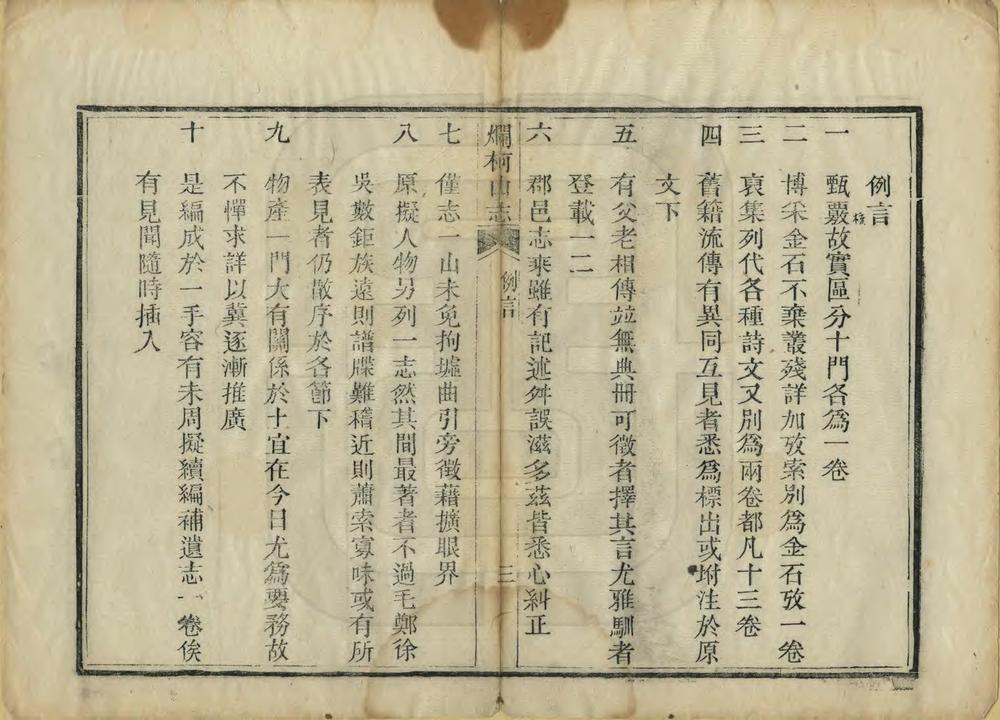 例言
一 甄覈故實區分十門各爲一卷
核
二 博采金石不棄叢殘詳加攷索別爲金石攷一卷
三 裒集列代各種詩文又別爲兩卷都凡十三卷
四 舊籍流傳有異同互見者悉爲標出或坿注於原
文下
五 有父老相傳竝無典冊可徵者擇其言尤雅馴者
登載一二
六 郡邑志乘雖有記述舛誤滋多茲皆悉心糾正
爛柯山志 例言 三
七 僅志一山未免拘墟曲引旁徵藉擴眼界
八 原擬人物另列一志然其間最著者不過毛鄭徐
吳數鉅族遠則譜牒難稽近則蕭索寡味或有所
表見者仍散序於各節下
九 物產一門大有關係於土宜在今日尤爲要務故
不憚求詳以冀逐漸推廣
十 是編成於一手容有未周擬續編補遺志一卷俟
有見聞隨時插入